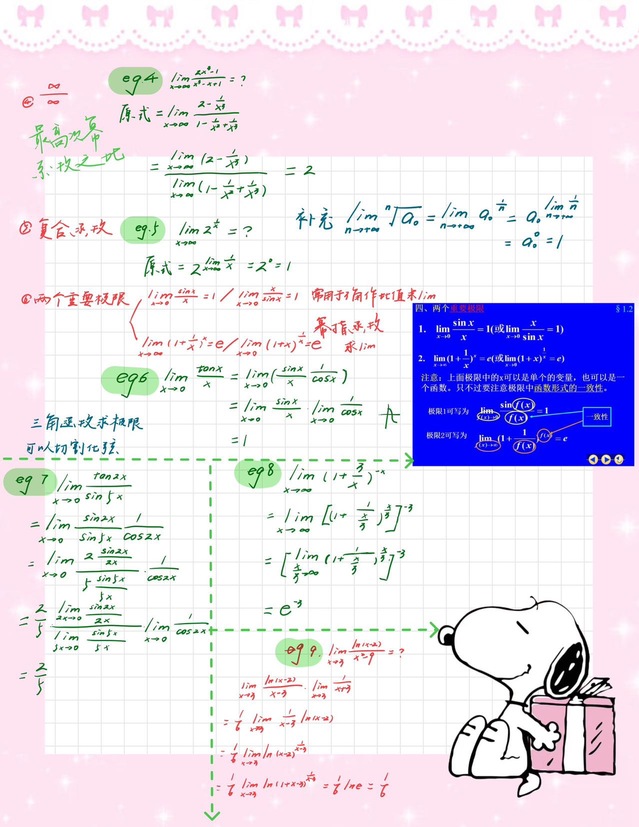 ④ ∞/∞
最高次幂
系数之比
eg4 lim_{x→∞} (2x³-1)/(x³-x+1) = ?
原式 = lim_{x→∞} (2-1/x³)/(1-1/x²+1/x³)
= lim_{x→∞}(2-1/x³) / lim_{x→∞}(1-1/x²+1/x³) = 2
⑤ 复合函数 eg.5 lim_{x→∞} 2^{1/x} = ?
原式 = 2^{lim_{x→∞} 1/x} = 2⁰ = 1
补充 lim_{n→+∞} ⁿ√a₀ = lim_{n→+∞} a₀^{1/n} = a₀^{lim_{n→+∞} 1/n}
= a₀⁰ = 1
⑥ 两个重要极限 lim_{x→0} sinx/x = 1 / lim_{x→0} x/sinx = 1 常用于三角作比值求lim
lim_{x→∞} (1+1/x)^x = e / lim_{x→0} (1+x)^{1/x} = e 幂指函数
求lim
四、两个重要极限 § 1.2
1. lim_{x→0} sin x/x = 1(或lim_{x→0} x/sin x = 1)
2. lim_{x→∞} (1+1/x)^x = e(或lim_{x→0} (1+x)^{1/x} = e)
注意：上面极限中的x可以是单个的变量，也可以是一
个函数。只不过要注意极限中函数形式的一致性。
极限1可写为 lim_{f(x)→0} sin f(x)/f(x) = 1
一致性
极限2可写为 lim_{f(x)→∞} (1+1/f(x))^{f(x)} = e
eg6 lim_{x→0} tanx/x = lim_{x→0} (sinx/x · 1/cosx)
= lim_{x→0} sinx/x · lim_{x→0} 1/cosx
= 1
三角函数求极限
可以切割化弦
eg7 lim_{x→0} tan2x/sin5x
= lim_{x→0} sin2x/sin5x · 1/cos2x
= lim_{x→0} (2 sin2x/2x)/(5 sin5x/5x) · 1/cos2x
= 2/5 · (lim_{2x→0} sin2x/2x)/(lim_{5x→0} sin5x/5x) · lim_{x→0} 1/cos2x
= 2/5
eg8 lim_{x→∞} (1+3/x)^{-x}
= lim_{x→∞} [(1+1/(x/3))^{x/3}]^{-3}
= [lim_{x/3→∞} (1+1/(x/3))^{x/3}]^{-3}
= e^{-3}
eg9. lim_{x→3} ln(x-2)/(x²-9) = ?
lim_{x→3} ln(x-2)/(x-3) · lim_{x→3} 1/(x+3)
= 1/6 lim_{x→3} 1/(x-3) ln(x-2)
= 1/6 lim_{x→3} ln(x-2)^{1/(x-3)}
= 1/6 lim_{x→3} ln(1+x-3)^{1/(x-3)} = 1/6 lne = 1/6